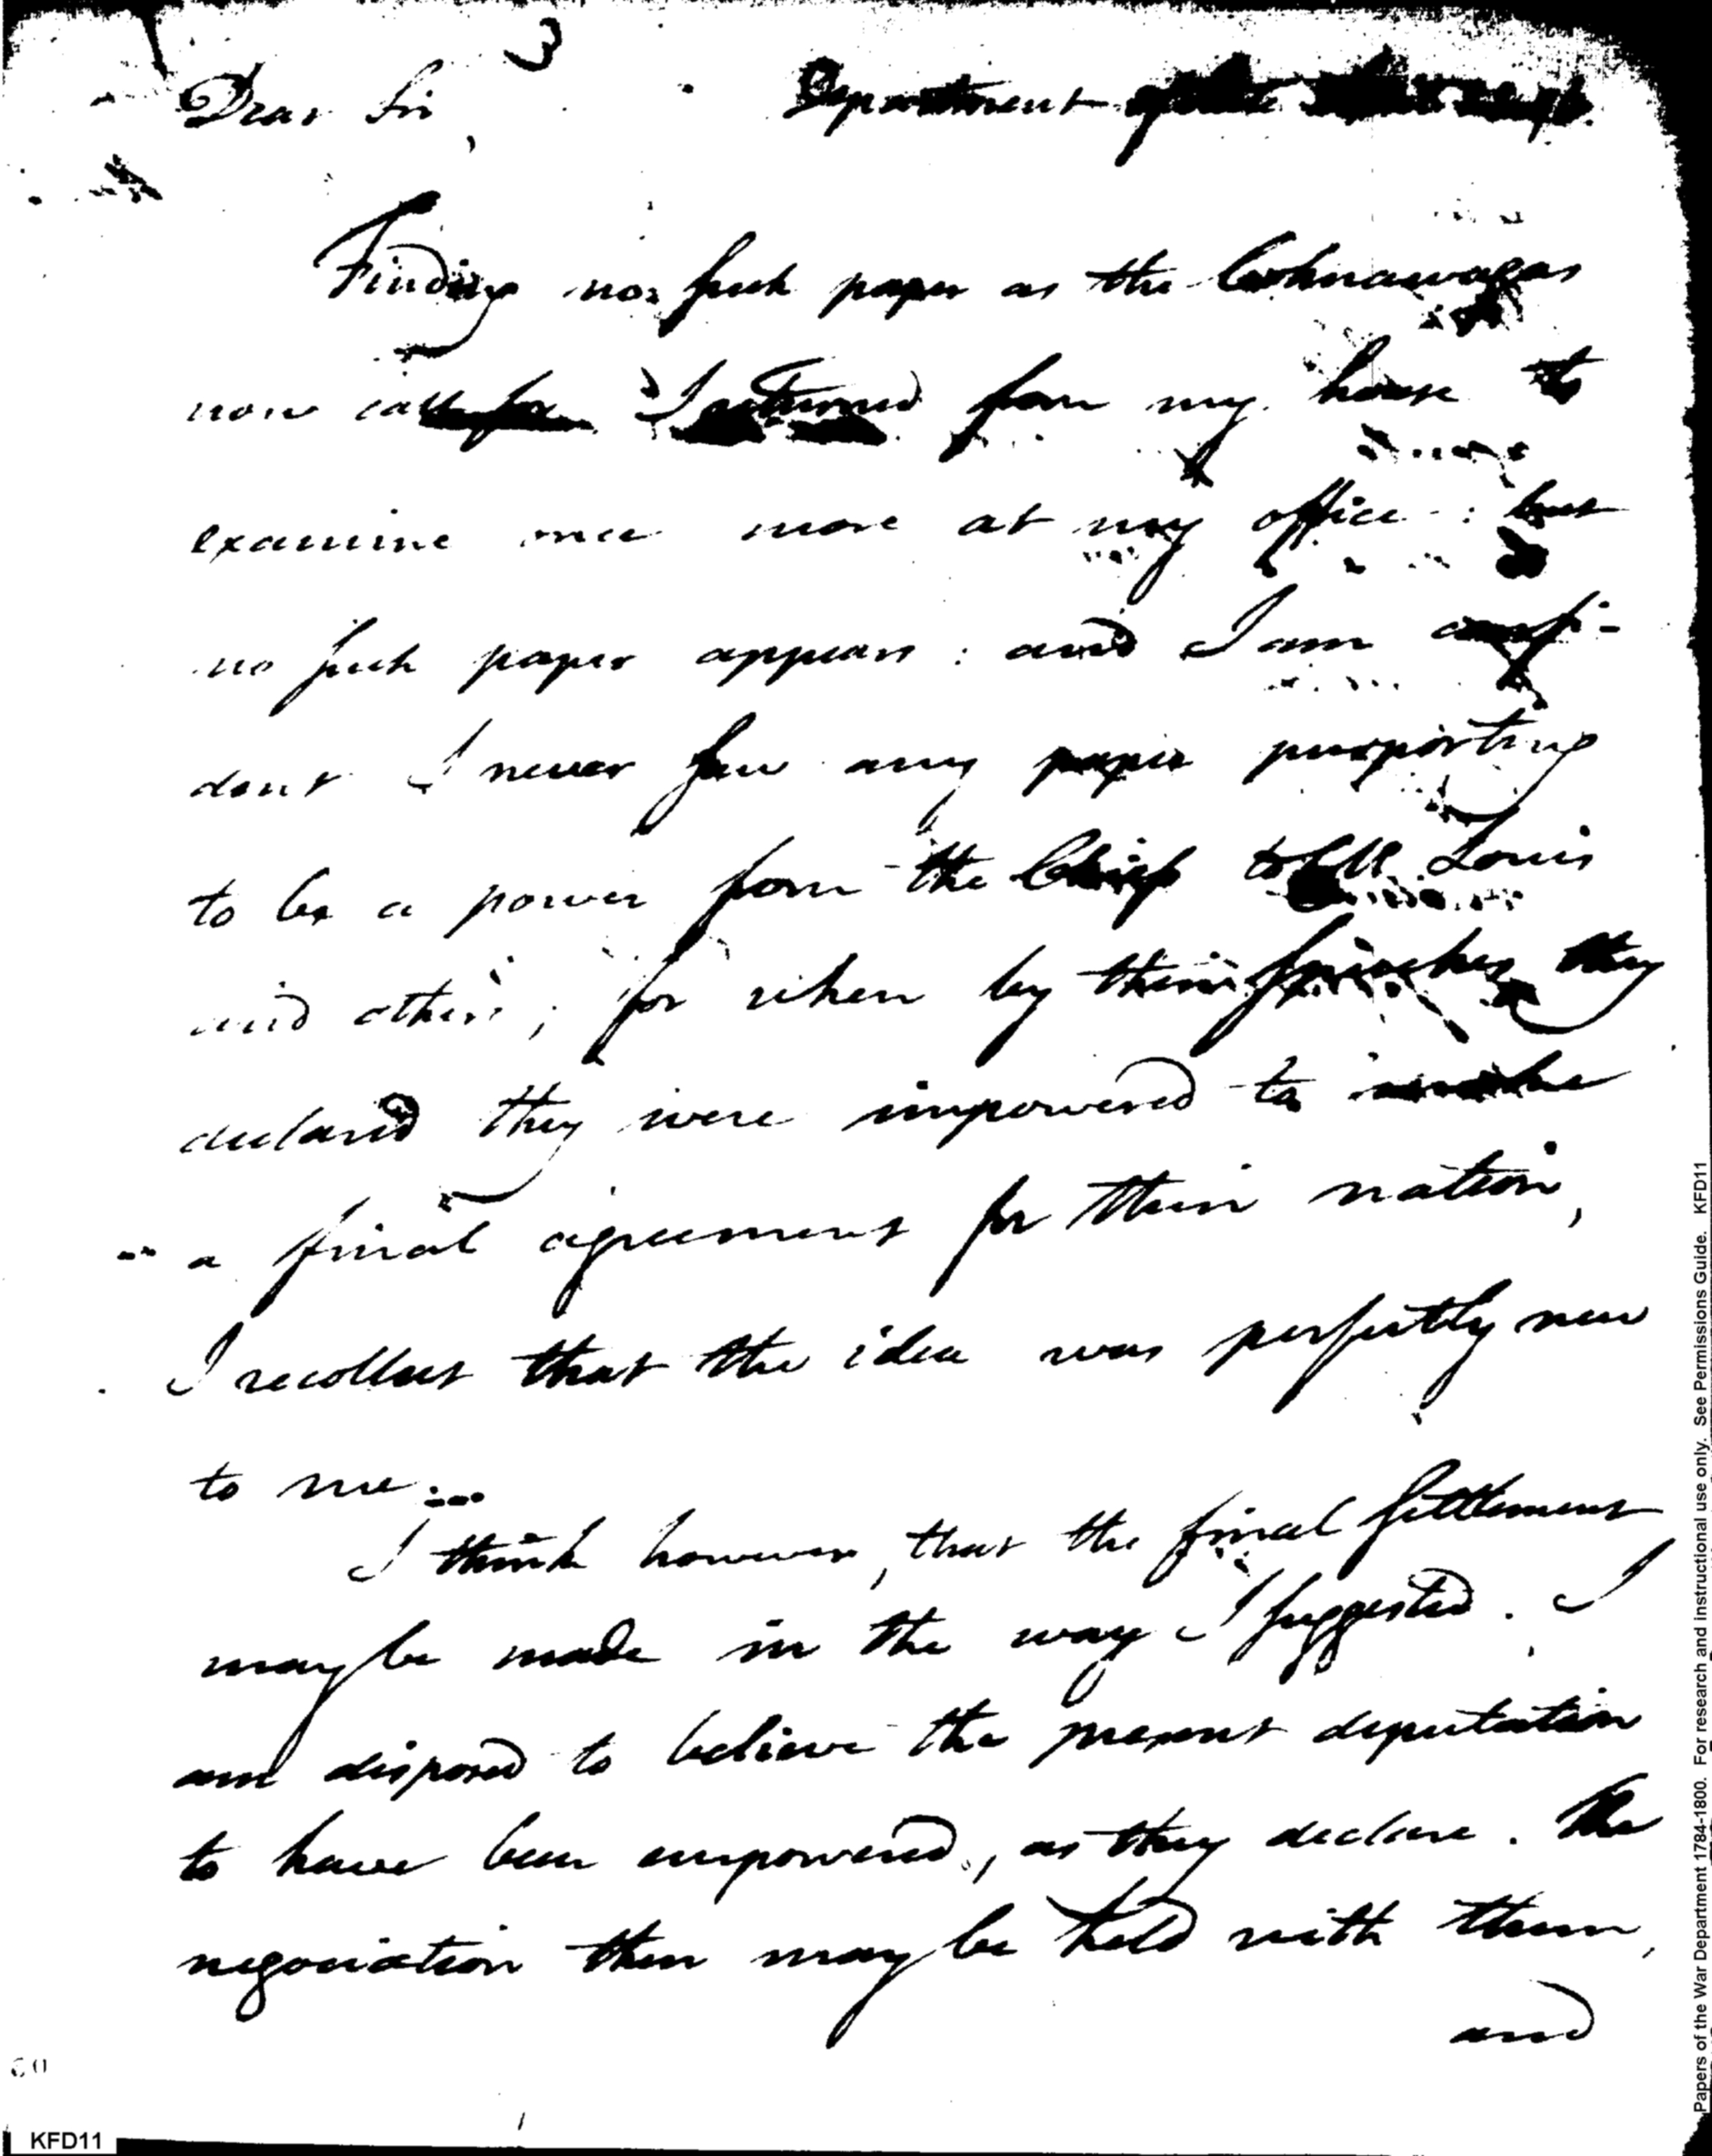 3
Dear Sir, Department of State
Finding no such paper as the Cohnawagas
now call for I returned from my house to
examine once more at my office : but
no such paper appears : and I am confi-
dent I never saw any paper purporting
to be a power from the Chiefs to Louis
and others ; for when by their speeches they
declared they were impowered to make
a final agreement for their nation,
I recollect that the idea was perfectly new
to me.
I think however, that the final settlement
may be made in the way I suggested. I
am disposed to believe the present deputation
to have been empowered, as they declare. The
negociation then may be held with them,
and
60
KFD11
Papers of the War Department 1784-1800. For research and instructional use only. See Permissions Guide. KFD11